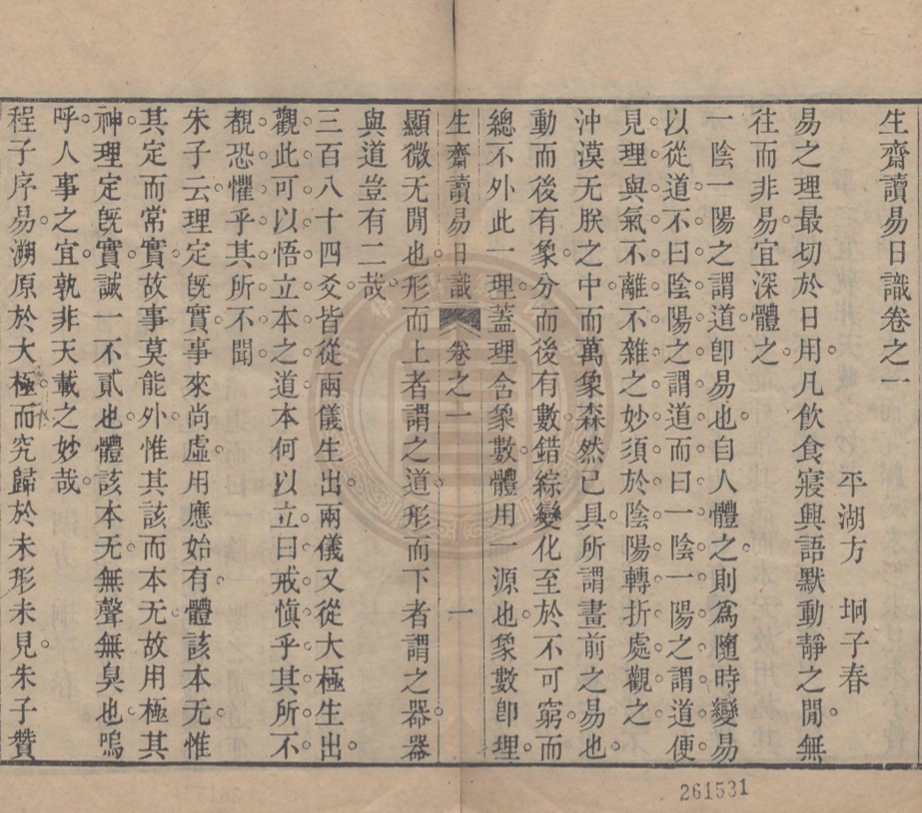 生齋讀易日識卷之一
平湖方 坰子春
易之理最切於日用凡飮食寢興語默動靜之閒無
往而非易宜深體之
一陰一陽之謂道卽易也自人體之則爲隨時變易
以從道不曰陰陽之謂道而曰一陰一陽之謂道便
見理與氣不離不雜之妙須於陰陽轉折處觀之
沖漠无朕之中而萬象森然已具所謂畫前之易也
動而後有象分而後有數錯綜變化至於不可窮而
總不外此一理蓋理含象數體用一源也象數卽理
生齋讀易日識 卷之一 一
顯微无閒也形而上者謂之道形而下者謂之器器
與道豈有二哉
三百八十四爻皆從兩儀生出兩儀又從大極生出
觀此可以悟立本之道本何以立曰戒愼乎其所不
覩恐懼乎其所不聞
朱子云理定旣實事來尚虛用應始有體該本无惟
其定而常實故事莫能外惟其該而本无故用極其
神理定旣實誠一不貳也體該本无無聲無臭也嗚
呼人事之宜孰非天載之妙哉
程子序易溯原於大極而究歸於未形未見朱子贊
261531